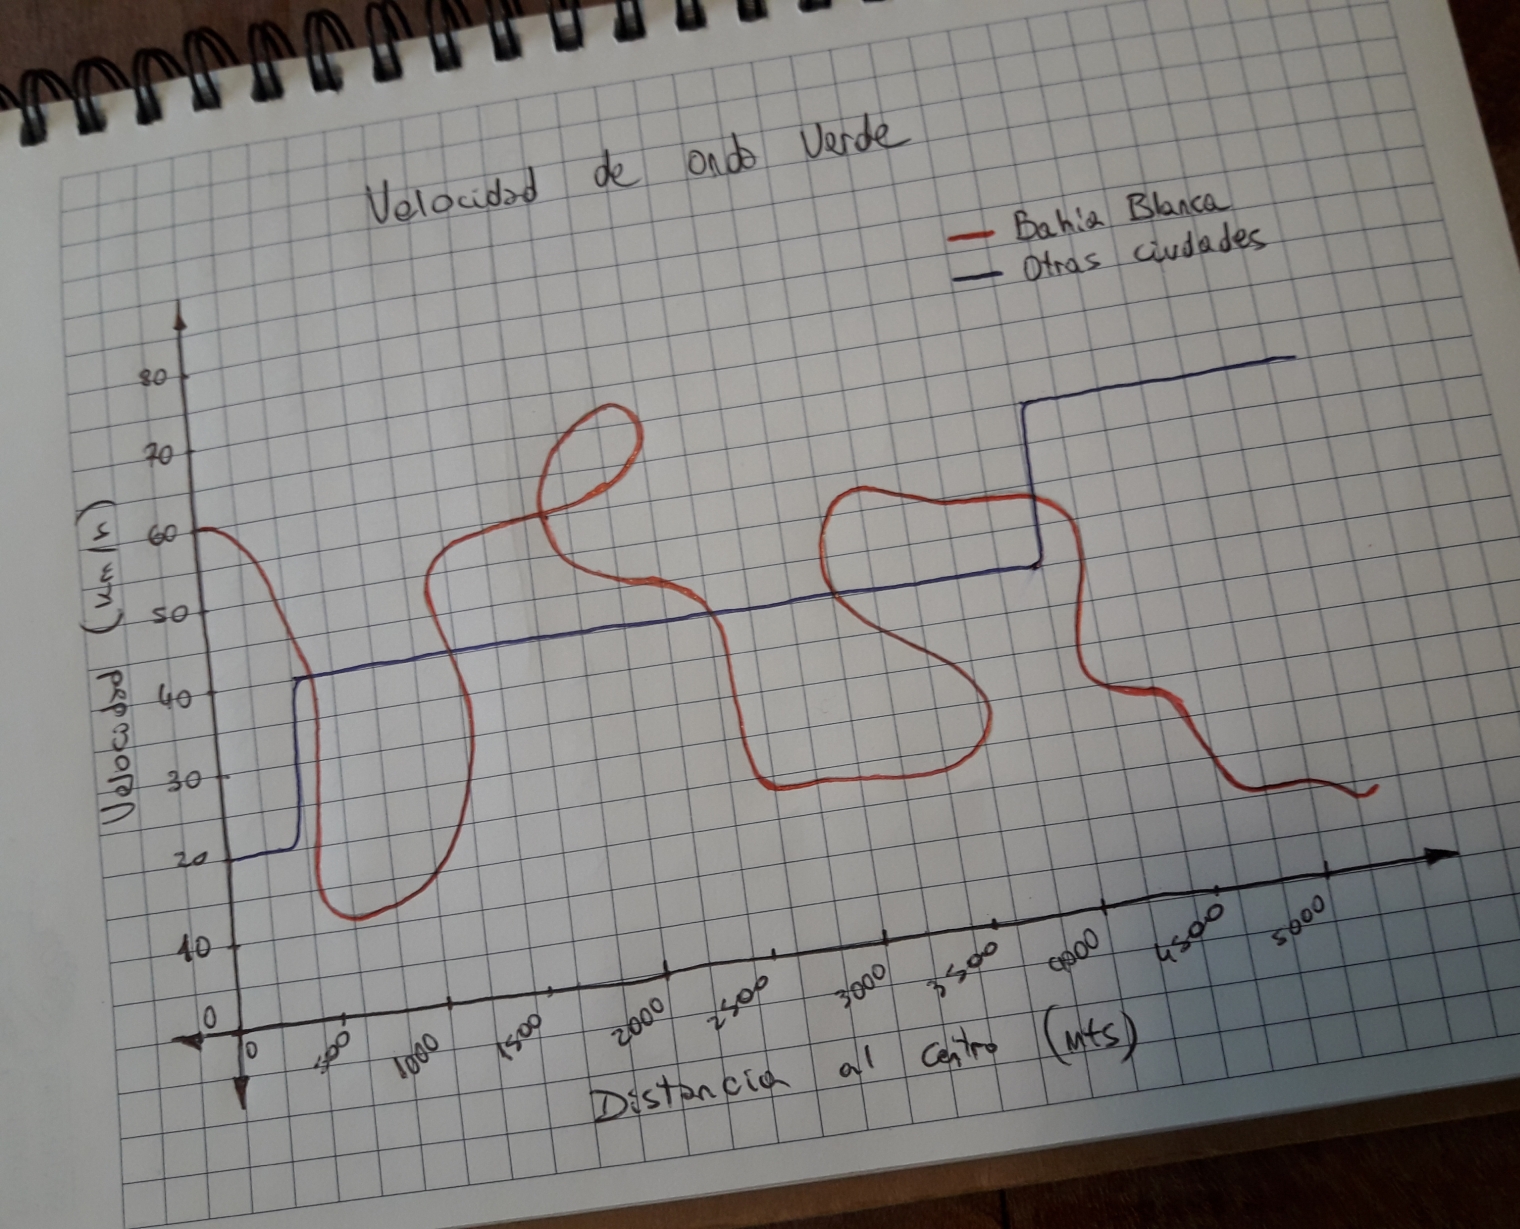 Velocidad de onda Verde
Bahia Blanca
Otras ciudades
Velocidad (km/h)
80
70
60
50
40
30
20
10
0
0 500 1000 1500 2000 2500 3000 3500 4000 4500 5000
Distancia al Centro (mts)